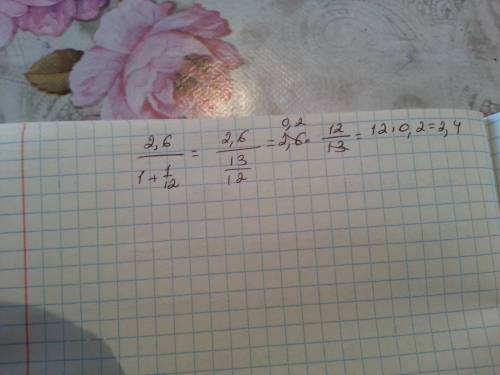 2,6 / (1 + 1/12) = 2,6 / (13/12) = 2,6 · 12/13 = 12 · 0,2 = 2,4
0,2